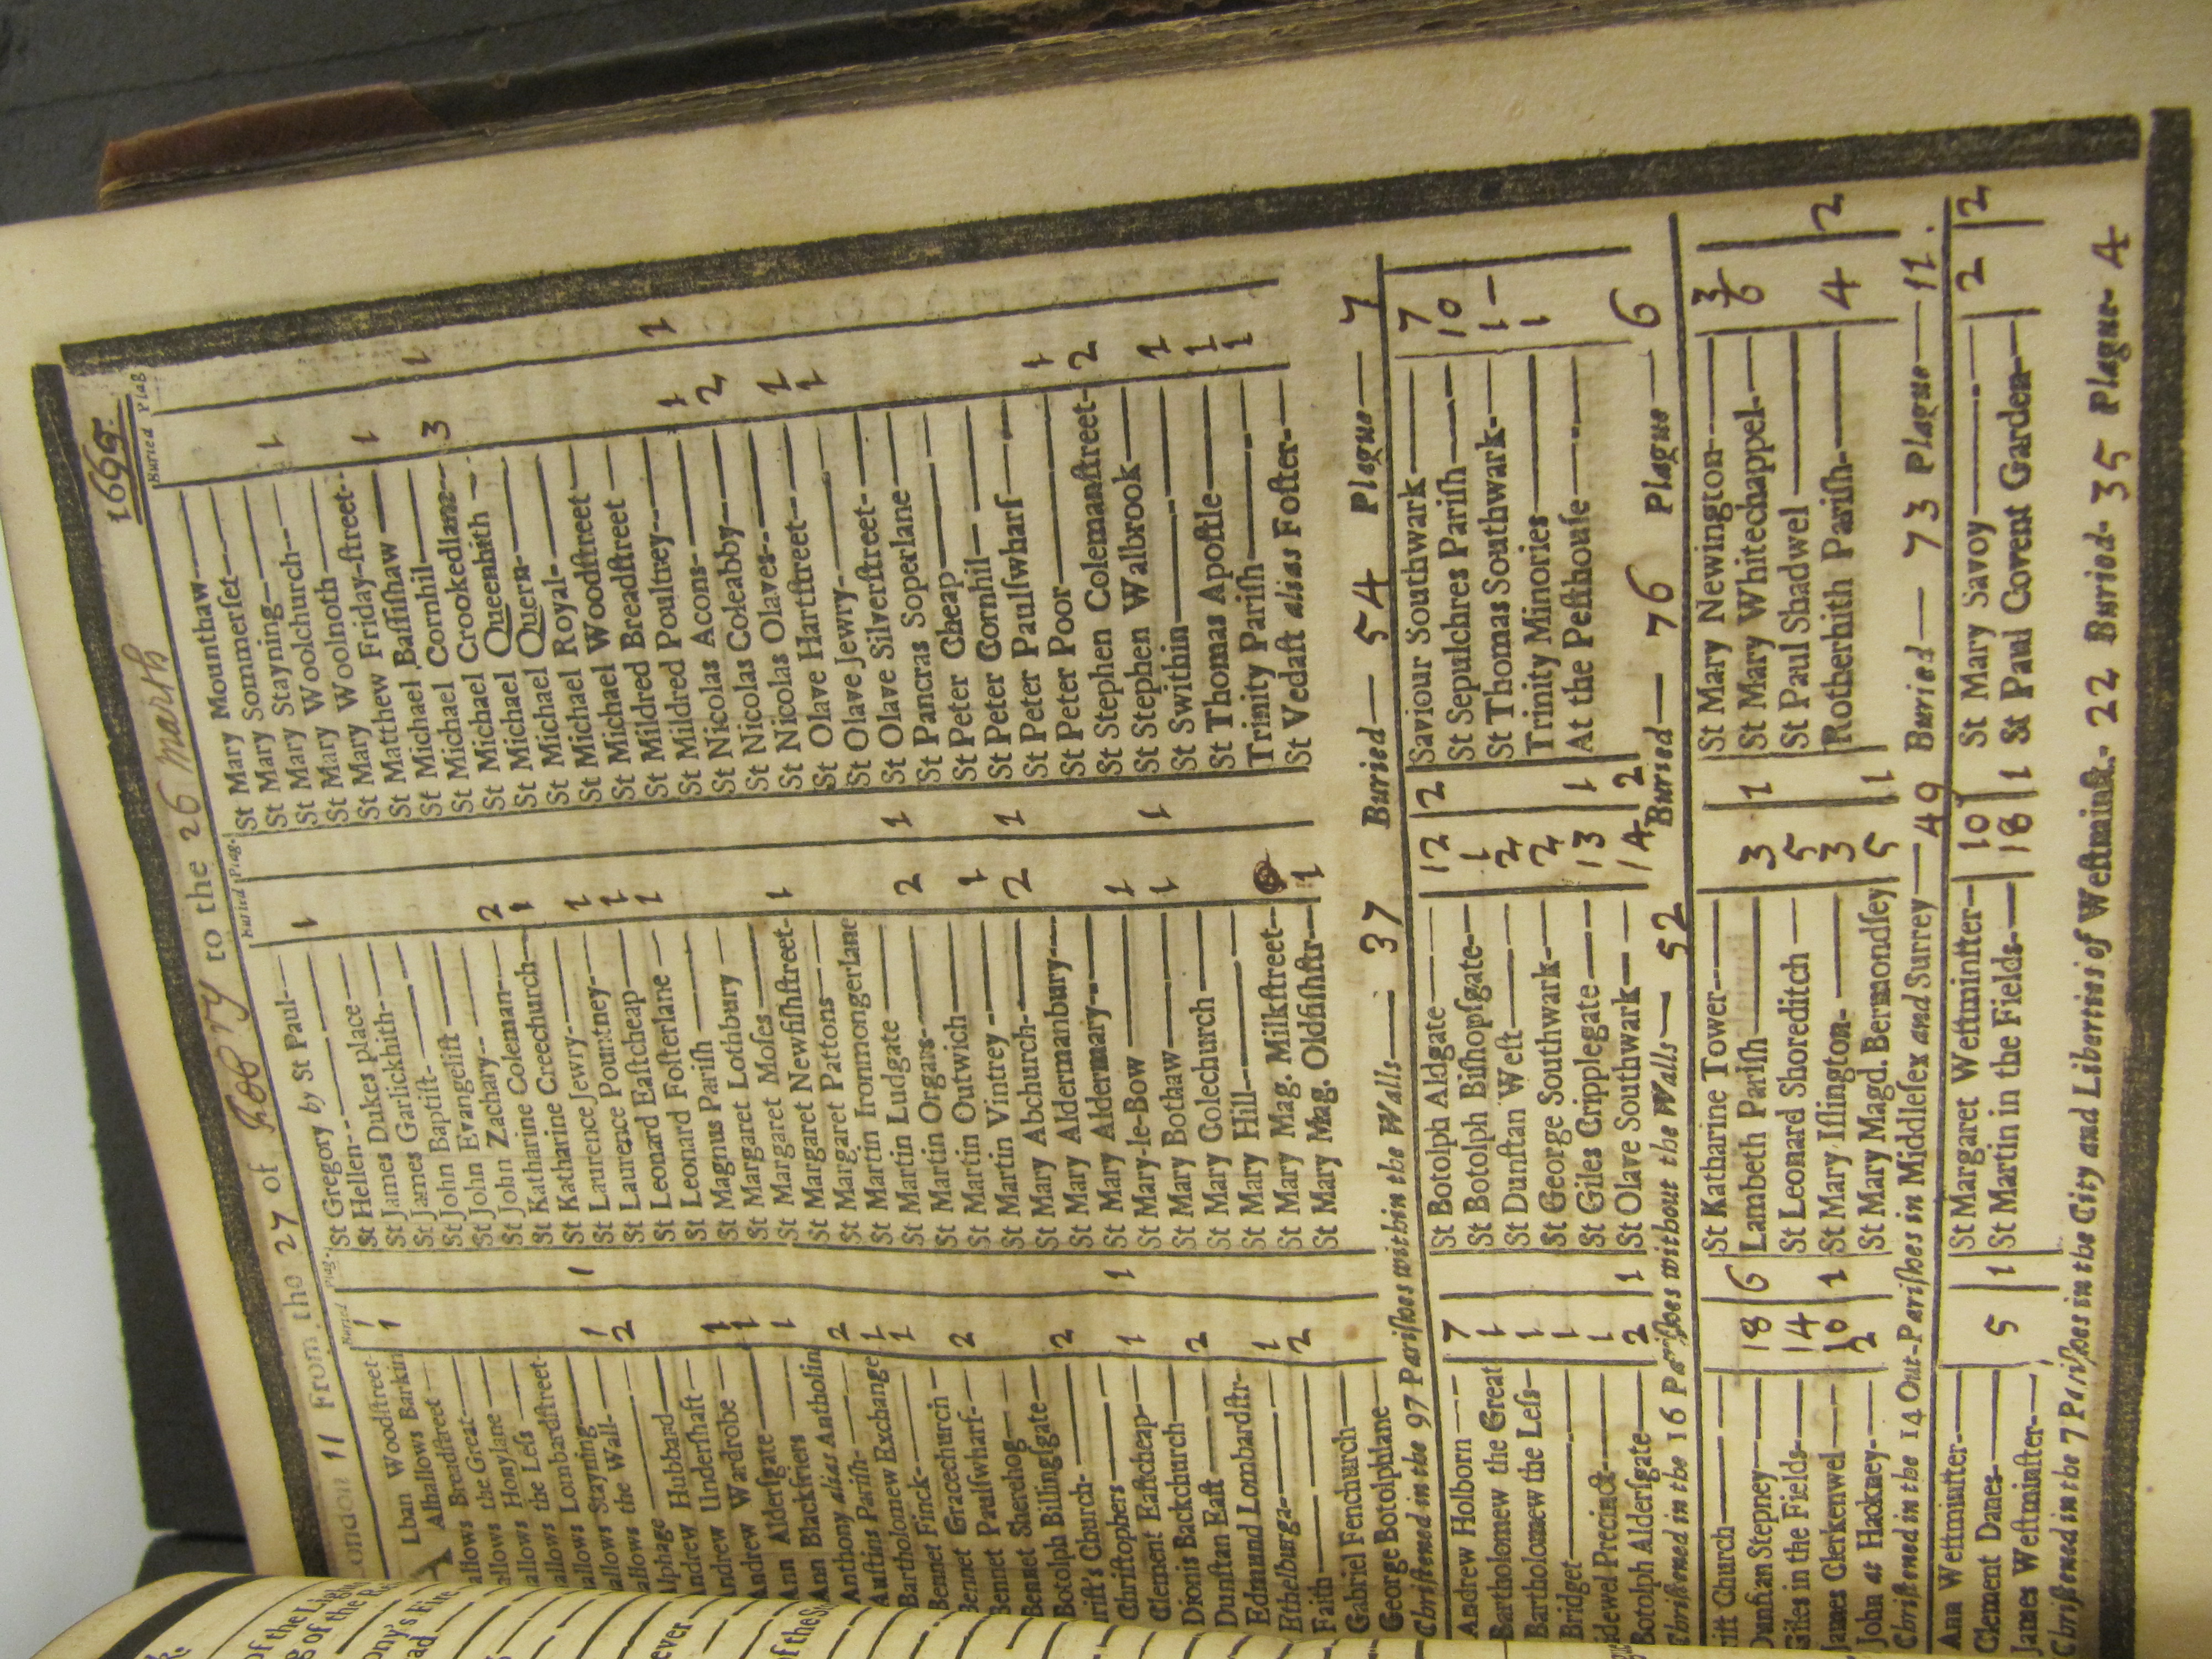 ondon 11 From the 27 of Feb ry to the 26 March 1665.
Buried Plag.
Lban Woodſtreet- 1
Alhallows Barkin 1
allows Breadſtreet —
allows the Great—
allows Honylane —
allows the Leſs —
allows Lombardſtreet-
allows Stayning— 1
allows the Wall- — 2 1
Alphage —
Andrew Hubbard—
Andrew Underſhaft — 1
Andrew Wardrobe — 1
Ann Alderſgate — 1
Ann Blackfriers —
Anthony alias Antholin 2
Auſtins Pariſh- — 1
Bartholomew Exchange 1
Bennet Finck- —
Bennet Gracechurch — 2
Bennet Paulſwharf- —
Bennet Sherehog —
Botolph Billingſgate— 2
riſt's Church- —
Chriſtophers — 1 1
Clement Eaſtcheap—
Dionis Backchurch — 2
Dunſtan Eaſt —
Edmund Lombardſtr- 1
Ethelburga- — 2
Faith —
Gabriel Fenchurch—
George Botolphlane
Buried Plag.
St Gregory by St Paul— 1
St Hellen- —
St James Dukes place —
St James Garlickhith- —
St John Baptiſt- —
St John Evangeliſt —
St John Zachary-- — 2
St Katharine Coleman— 1
St Katharine Creechurch—
St Katharine Jewry- — 1
St Laurence Pountney- — 1
St Leonard Eaſtcheap— 1
St Leonard Foſterlane —
St Magnus Pariſh —
St Margaret Lothbury —
St Margaret Moſes —
St Margaret Newfiſhſtreet- 1
St Margaret Pattons—
St Martin Ironmongerlane
St Martin Ludgate —
St Martin Orgars- — 2 1
St Martin Outwich —
St Martin Vintrey — 1
St Mary Abchurch- — 2 1
St Mary Aldermanbury—
St Mary Aldermary- —
St Mary-le-Bow — 1
St Mary Bothaw— 1 1
St Mary Colechurch —
St Mary Hill- —
St Mary Mag. Milkſtreet-
St Mary Mag. Oldfiſhſtr— 1
Buried Plag
St Mary Mounthaw—
St Mary Sommerſet—
St Mary Stayning— 1
St Mary Woolchurch- —
St Mary Woolnoth —
St Mary Friday-ſtreet- 1
St Matthew Baſſiſhaw —
St Michael Cornhil— 1
St Michael Crookedlane- 3
St Michael Queenhith —
St Michael Quern- —
St Michael Royal- —
St Michael Woodſtreet —
St Mildred Breadſtreet —
St Mildred Poultrey- — 1
St Nicolas Acons- — 1
St Nicolas Coleabby— 2
St Nicolas Olaves- —
St Olave Hartſtreet- — 1
St Olave Jewry- — 1
St Olave Silverſtreet- —
St Pancras Soperlane —
St Peter Cheap—
St Peter Cornhil— —
St Peter Paulſwharf —
St Peter Poor— 1
St Stephen Colemanſtreet- 2
St Stephen Walbrook—
St Swithin— 1
St Thomas Apoſtle— 1
Trinity Pariſh— 1
St Vedaſt alias Foſter-
Chriſtened in the 97 Pariſhes within the Walls— 37 Buried— 54 Plague— 7
Andrew Holborn — 7
Bartholomew the Great 1
Bartholomew the Leſs- 1
Bridget— 1
idewel Precinct— 1
Botolph Alderſgate— 2 1
St Botolph Aldgate — 12 2
St Botolph Biſhopſgate- 1
St Dunſtan Weſt— 2
St George Southwark— 2
St Giles Cripplegate — 13 1
St Olave Southwark— 14 2
Saviour Southwark — 7
St Sepulchres Pariſh — 10
St Thomas Southwark- 1 —
Trinity Minories — 1
At the Peſthouſe —
Chriſtened in the 16 Pariſhes without the Walls— 52 Buried— 76 Plague— 6
riſt Church—
Dunſtan Stepney— 18 6
Giles in the Fields- 14
James Clerkenwel — 10 1
John at Hackney- — 2
St Katharine Tower—
Lambeth Pariſh— 3 1
St Leonard Shoreditch — 5
St Mary Iſlington- — 3
St Mary Magd. Bermondſey 5 1
St Mary Newington— 3
St Mary Whitechappel- 6
St Paul Shadwel —
Rotherhith Pariſh- — 4 2
Chriſtened in the 14 Out-Pariſhes in Middleſex and Surrey— 49 Buried— 73 Plague— 11.
Ann Weſtminſter—
Clement Danes— 5 1
James Weſtminſter-
St Margaret Weſtminſter- 10
St Martin in the Fields— 18 1
St Mary Savoy— 2 2
St Paul Covent Garden—
Chriſtened in the 7 Pariſhes in the City and Liberties of Weſtminſt.- 22 Buried- 35 Plague- 4